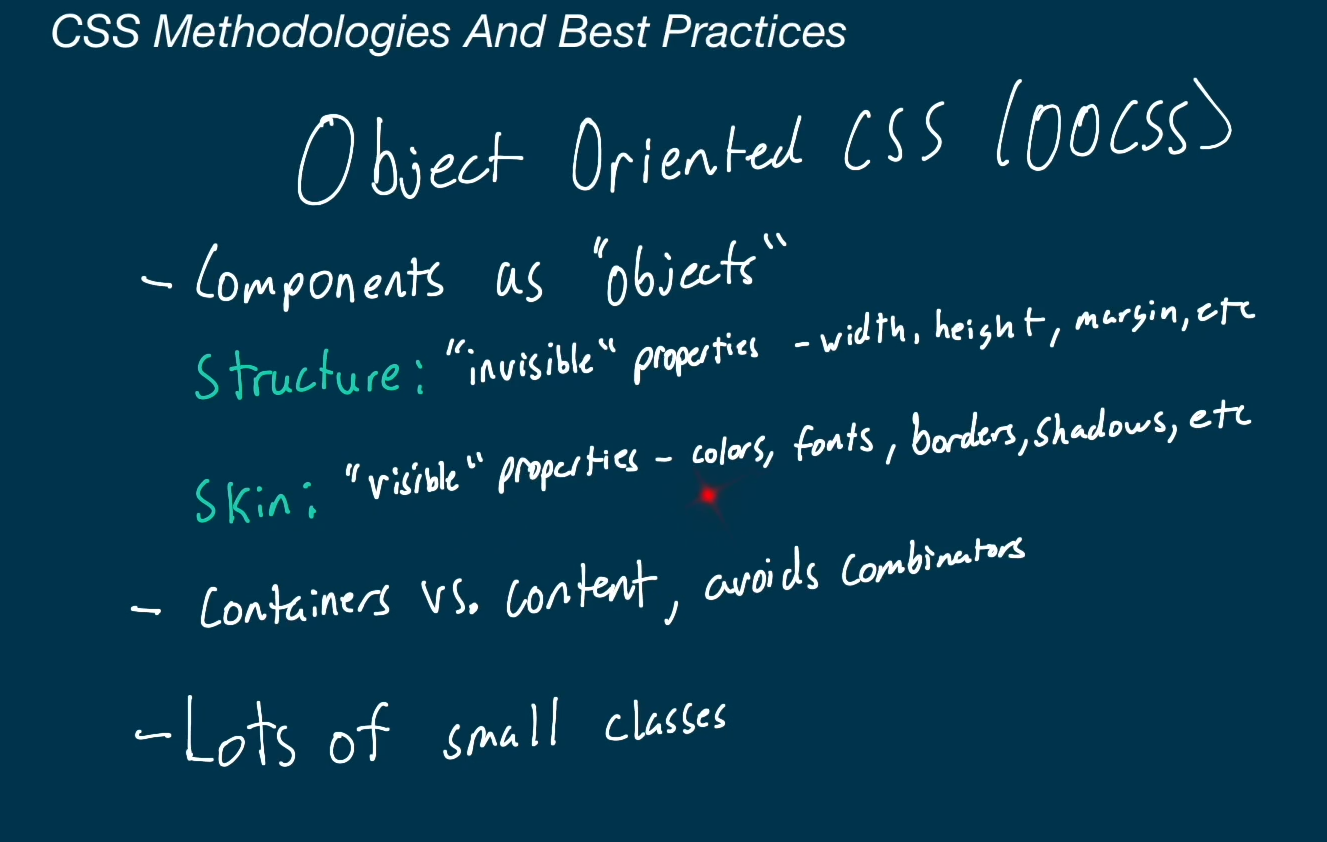 CSS Methodologies And Best Practices
Object Oriented CSS (OOCSS)
- Components as "objects"
Structure: "invisible" properties - width, height, margin, etc
Skin: "visible" properties - colors, fonts, borders, shadows, etc
- Containers vs. content, avoids combinators
- Lots of small classes